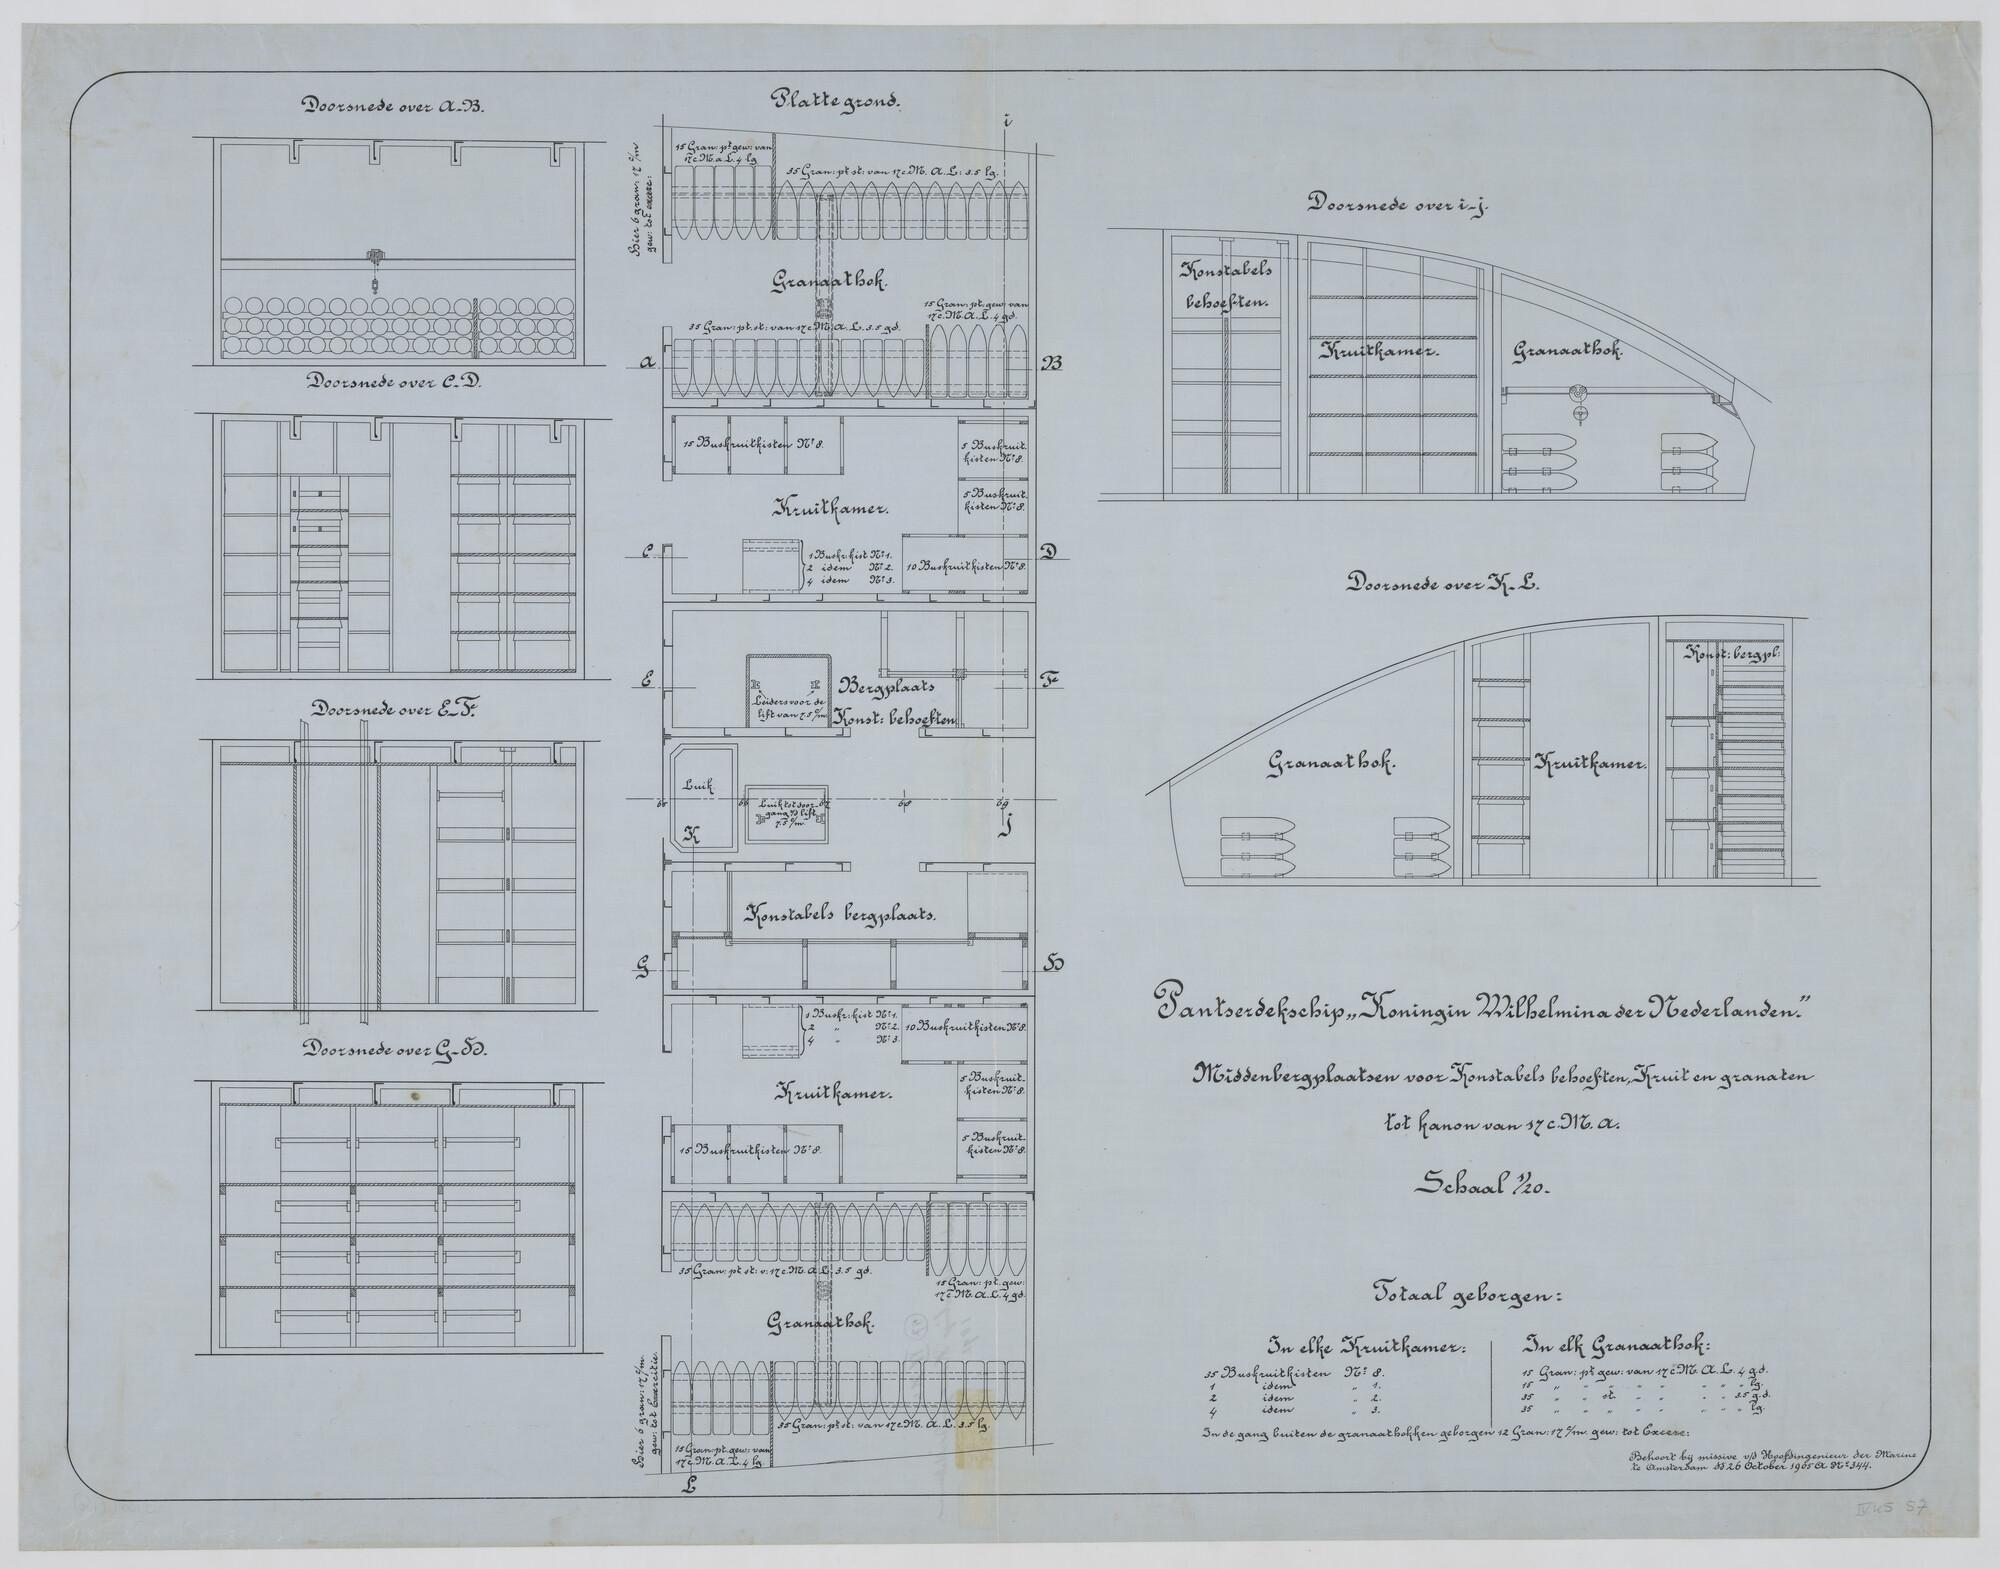 Doorsnede over A-B.
Doorsnede over C-D.
Doorsnede over E-F.
Doorsnede over G-H.
Plattegrond.
i
15 Gran: pt gew: van
17 c.M. A. L. 4 lg
35 Gran: pt st: van 17 c.M. A. L. 3.5 lg.
Hier 6 gran: 17 c/m
gew: tot exerc:
Granaathok.
15 Gran: pt. gew: van
17 c.M. A. L. 4 gd.
35 Gran: pt. st: van 17 c.M. A. L. 3.5 gd.
A
B
15 Buskruitkisten No 8.
5 Buskruit-
kisten No 8.
5 Buskruit-
kisten No 8.
Kruitkamer.
C
D
1 Buskr: kist No 1.
2 idem No 2.
4 idem No 3.
10 Buskruitkisten No 8.
E
F
Leiders voor de
lift van 7.5 c/m
Bergplaats
Konst: behoeften
Luik.
Luik tot door-
gang v/d lift
7.5 c/m.
65
66
67
68
69
K
j
Konstabels bergplaats.
G
H
1 Buskr: kist No 1.
2 " No 2.
4 " No 3.
10 Buskruitkisten No 8.
Kruitkamer.
5 Buskruit-
kisten No 8.
5 Buskruit-
kisten No 8.
15 Buskruitkisten No 8.
35 Gran: pt st: v: 17 c.M. A. L. 3.5 gd.
15 Gran: pt. gew:
17 c.M. A. L. 4 gd.
Granaathok.
Hier 6 gran: 17 c/m.
gew: tot Exercitie.
35 Gran: pt st: van 17 c.M. A. L. 3.5 lg.
15 Gran: pt. gew: van
17 c.M. A. L. 4 lg.
L
Doorsnede over i-j.
Konstabels
behoeften.
Kruitkamer.
Granaathok.
Doorsnede over K-L.
Granaathok.
Kruitkamer.
Konst: bergpl:
Pantserdekschip „Koningin Wilhelmina der Nederlanden."
Middenbergplaatsen voor Konstabels behoeften, Kruit en granaten
tot kanon van 17 c.M. A.
Schaal 1/20.
Totaal geborgen:
In elke Kruitkamer:
35 Buskruitkisten No 8.
1 idem " 1.
2 idem " 2.
4 idem " 3.
In elk Granaathok:
15 Gran: pt gew: van 17 c.M. A. L. 4 gd.
15 " " " " " " " " lg.
35 " " st. " " " " 3.5 gd.
35 " " " " " " " " lg.
In de gang buiten de granaathokken geborgen 12 Gran: 17 c/m. gew: tot Exerc:
Behoort bij missive v/d Hoofdingenieur der Marine
te Amsterdam dd 26 October 1905 A No 344.